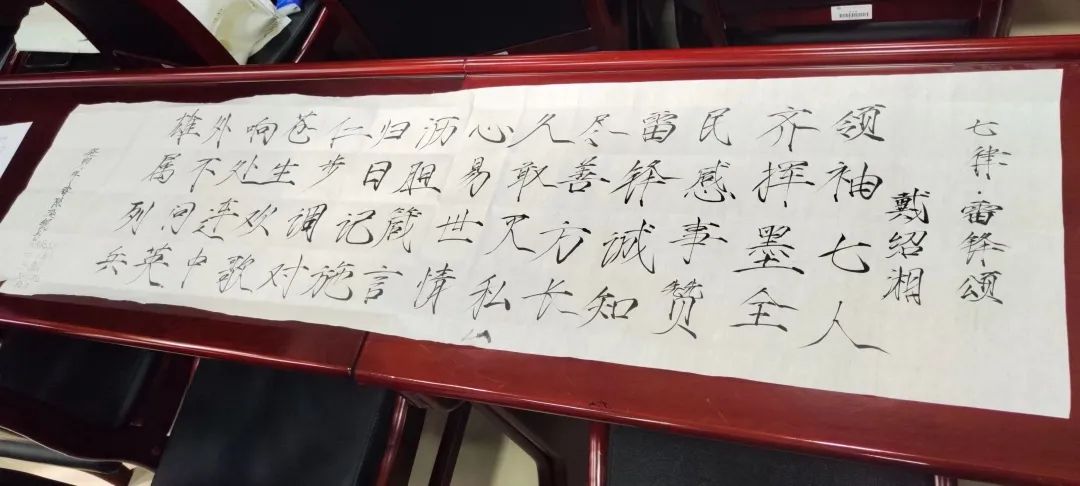 七律·雷锋颂
戴绍湘
领袖七人
齐挥墨全
民感事赞
雷锋诚知
尽善方长
久敢灭私
心易世情
沥胆箴言
归日记施
仁步调对
苍生欢歌
响处连中
外不问英
雄属列兵